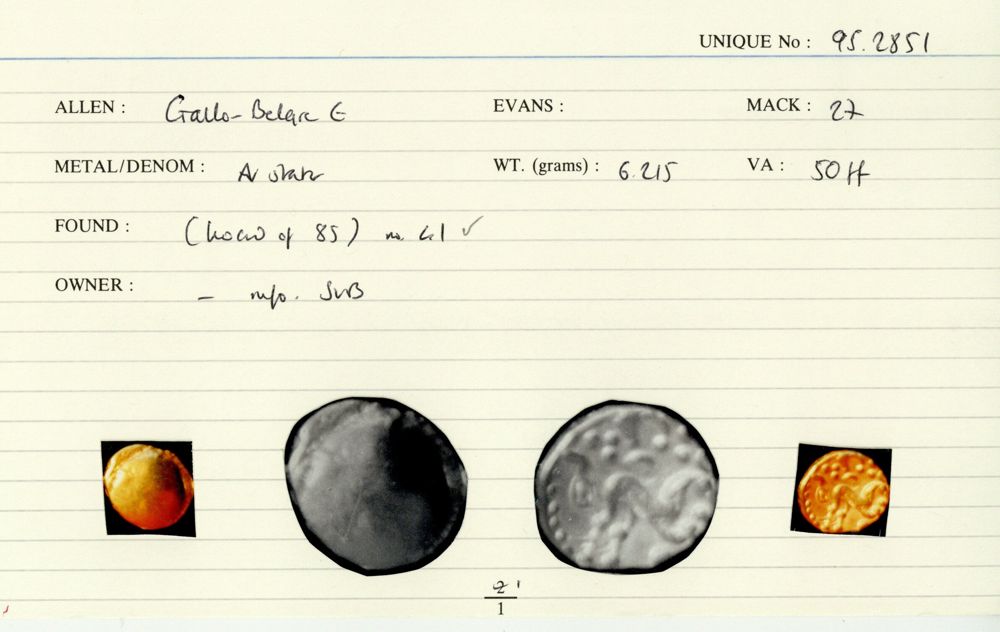 UNIQUE No : 95.2851
ALLEN : Gallo-Belgic E EVANS : MACK : 27
METAL/DENOM : AV stater WT. (grams) : 6.215 VA : 50 ff
FOUND : (hoard of 85) no. 41 ✓
OWNER : – info. SVB
2'
1